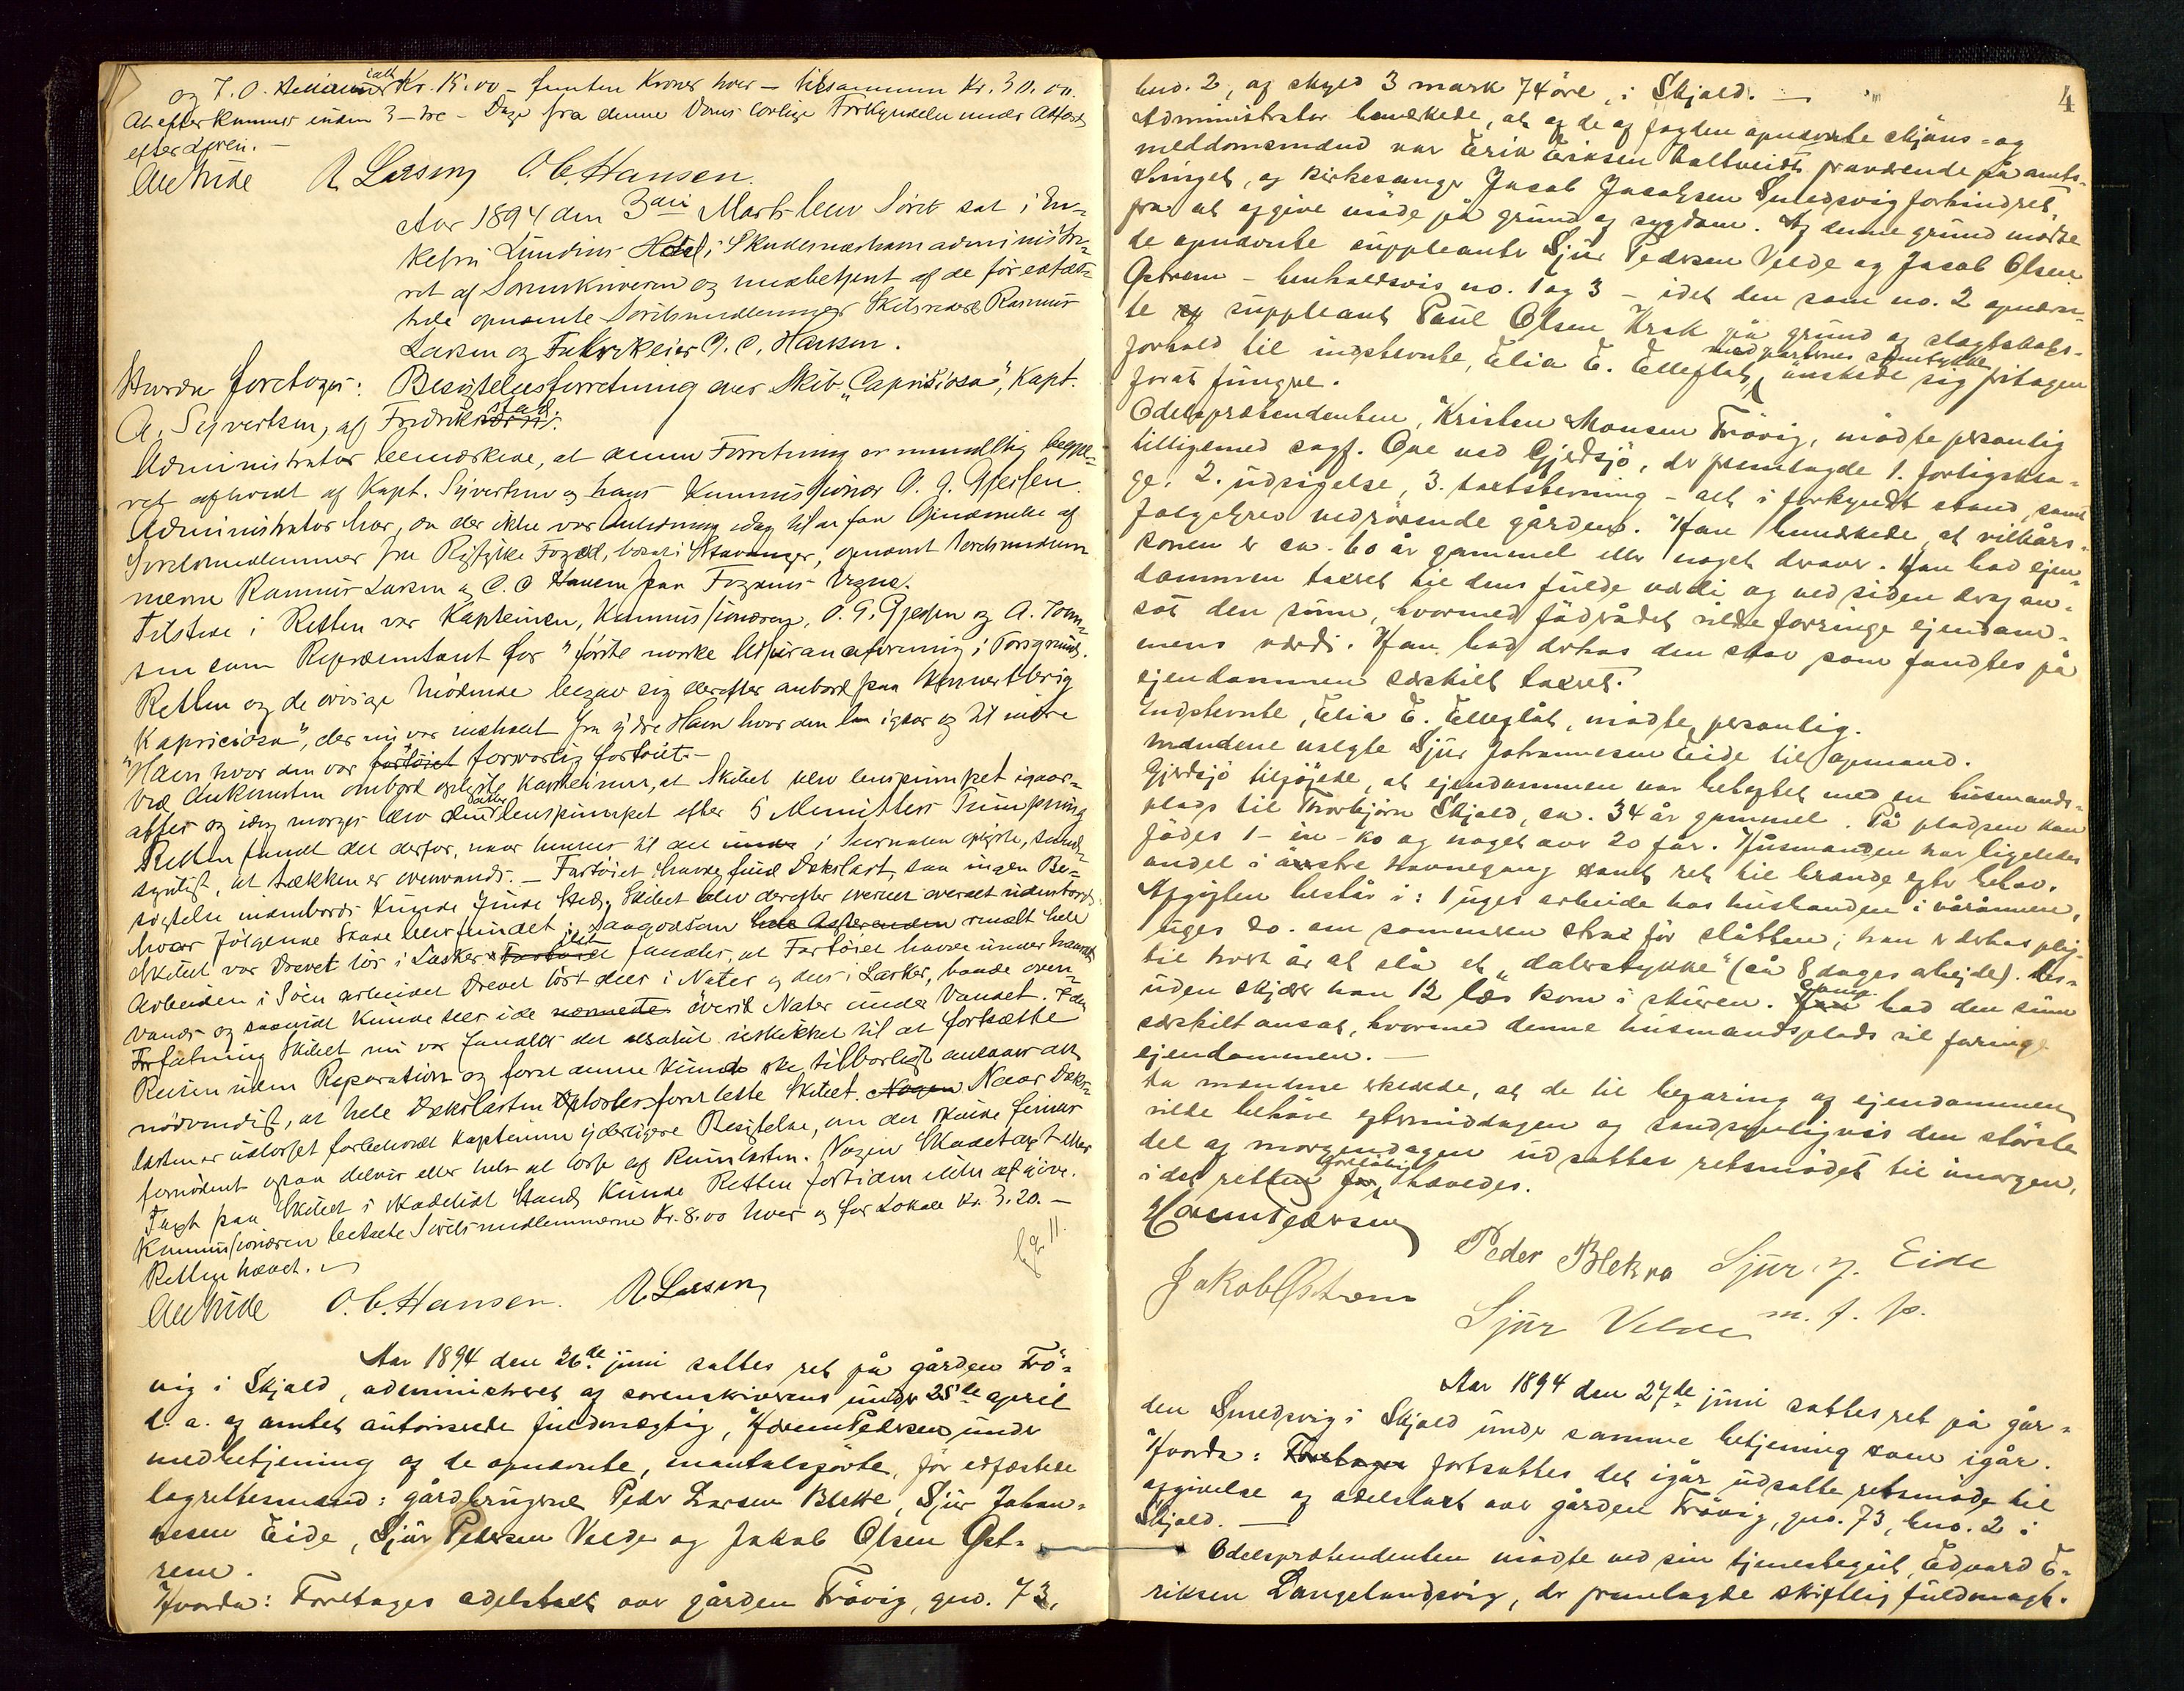 og T. O. ialt Kr. 15.00 – femten Kroner hver – tilsammen Kr. 30.00.
At efterkommes inden 3 – tre – Dage fra denne Doms lovlige Forkyndelse under Adfærd
efter Loven. –
R Larsen O. C. Hansen.
Aar 1894 den 3die Marts blev Soret sat i En-
kefru Lundins Hotel i Skudesneshavn administre-
ret af Sorenskriveren og medbetjent af de før edfæst-
tede opnævnte Soretsmedlemmer Skibsreder Rasmus
Larsen og Fabrikeier O. C. Hansen.
Hvorda foretoges: Besigtelsesforretning over Skib „Capriciosa", Kapt.
A. Syvertsen, af Fredrikstad.
Administrator bemærkede, at denne Forretning er mundtlig begjæ-
ret afholdt af Kapt. Syvertsen og hans Kommissionær O. G. Gjessen.
Administrator har, da der ikke var Anledning idag til at faa Opnævnelse af
Soretsmedlemmer fra Ryfylke Fogded, bosat i Stavanger, opnævnt Soretsmedlem-
merne Rasmus Larsen og O. C. Hansen paa Fogdens Vegne.
Tilstede i Retten var Kapteinen, Kommissionæren, O. G. Gjessen og A. Tom-
sen som Repræsentant for "første norske Assuranceforening i Porsgrund.
Retten og de øvrige Mødende begav sig derefter ombord paa skonnertbrig
"Kapriciosa", der nu var indhalet fra ydre Havn hvor den laa igaar og til indre
Havn, hvor den var fortøiet forsvarlig fortøiet. –
Ved Ankomsten ombord oplyste Kapteinen, at Skibet blev lenspumpet igaar-
aftes og idag morges blev det lenspumpet efter 5 Minutters Pumpning
Retten fandt det derfor, naar hensees til det i Journalen oplyste, sand-
synligt, at Lækken er ovenvands. – Fartøiet havde fuld Dækslast, saa ingen Be-
sigtelse indenbords kunde finde Sted. Skibet blev derefter overalt udenbords
hvor følgende Skade blev fundet: saagodtsom hele Agterenden rundt hele
Skibet var Drevet løs i Lasker. Det fandtes, at Fartøiet havde under haardt
Arbeiden i Søen arbeidet Drevet løst dels i Nater og dels i Lasker, baade oven-
vands og saavidt kunde sees i de nævnte øverste Nater under Vandet. I den
Forfatning Skibet nu var fandtes det absolut uskikket til at fortsætte
Reisen uden Reparation og forat denne kunde ske tilbørligt ansaaes det
nødvendigt, at hele Dækslasten oplosses forat lette Skibet. Nogen Naar Dæks-
lasten er udlosset forbeholdt Kapteinen yderligere Besigtelse, om der skulde findes
fornødent ogsaa delvis eller helt at losse af Rumlasten. Nogen Skadetaxt eller
Taxt paa Skibet i skadelidt Stand kunde Retten fortiden ikke afgive.
Kommissionæren betalte Soretsmedlemmerne Kr. 8.00 hver og for Lokale Kr. 3.20. –
Retten hævet.
O. C. Hansen. R Larsen
Aar 1894 den 26de juni sattes ret på gården Frö-
vig i Skjold, administreret af sorenskriverens under 25de april
d. a. af amtet autoriserede fuldmægtig, Horem Petersen under
medbetjening af de opnævnte, mantalsførte, før edfæstede
lagrettesmænd: gårdbrugerne Peder Larsen Blekre, Sjur Johan-
nesen Eide, Sjur Petersen Velde og Jakob Olsen Øst-
rem.
Hvorda: Foretages odelstakst over gården Frövig, gno. 73,
4
bno. 2, af skyld 3 mark 74 öre, i Skjold. –
Administrator bemærkede, at af de af fogden opnævnte skjöns- og
meddomsmænd var Erik Eriksen Kaltveidt fraværende på amts-
tinget, og kirkesanger Jacob Jacobsen Smedsvig forhindret
fra at afgive möde på grund af sygdom. Af denne grund mødte
de opnævnte suppleanter Sjur Pedersen Velde og Jacob Olsen
Østrem – henholdsvis no. 1 og 3 – idet den som no. 2 opnævn-
te suppleant Paul Olsen Krak på grund af slagtskabs-
forhold til indstevnte, Elia E. Elleflåt, med parternes samtykke önskede sig fritagen
forat fungere.
Odelsprætendenten, Kristen Monsen Frövig, mödte personlig
tilligemed sagf. Ove ved Gjerdsjö, der fremlagde 1. forligskla-
ge. 2. udsigelse, 3. takststevning – alt i forkyndt stand, samt
folgebrev vedrörende gården. Han bemærkede, at vilkårs-
konen er ca. 60 år gammel eller noget derover. Han bad ejen-
dommen takseret til dens fulde værdi og ved siden deraf an-
sat den sum, hvormed födrådet vilde forringe ejendom-
mens værdi. Han bad derhos den skov som fandtes på
ejendommen særskilt takseret.
Indstevnte, Elia E. Elleflåt, mödte personlig.
Mændene valgte Sjur Johannesen Eide til opmand.
Gjerdsjö tilföiede, at ejendommen var beheftet med en husmands-
plads til Thorbjörn Skjold, ca. 34 år gammel. På pladsen kan
födes 1 – en – ko og noget over 20 får. Husmanden har ligeledes
andel i östre havnegang samt ret til brænde efter behov.
Afgiften består i: 1 uges arbeide hos husbonden i vårånnene,
uges do. om sommeren strax för slåtten; han er derhos plig-
til hvert år at slå et „dalerstykke" (så 8 dages arbejde). Des-
uden skjærer han 12 læs korn i skuren. bad den sum
særskilt ansat, hvormed denne husmandsplads vil foringe
ejendommen. –
Da mændene erklærede, at de til befaring af ejendommen
vilde behöve eftermiddagen og sandsynligvis den störste
del af morgendagen udsattes retsmödet til imorgen,
idet retten forelöbig hævedes.
Horem Petersen
Peder Blekra Sjur J. Eide
Jakob Østrem
Sjur Velde m. f. p.
Aar 1894 den 27de juni sattes ret på går-
den Smedsvig i Skjold under samme betjening som igår.
Hvorda: Foretages fortsattes det igår udsatte retsmöde til
afgivelse af odelstakst over gården Frövig, gno. 73, bno. 2 i
Skjold. –
Odelsprætendenten mödte ved sin tjenestegut, Edvard E-
riksen Langelandsvig, der fremlagde skriftlig fuldmagt.